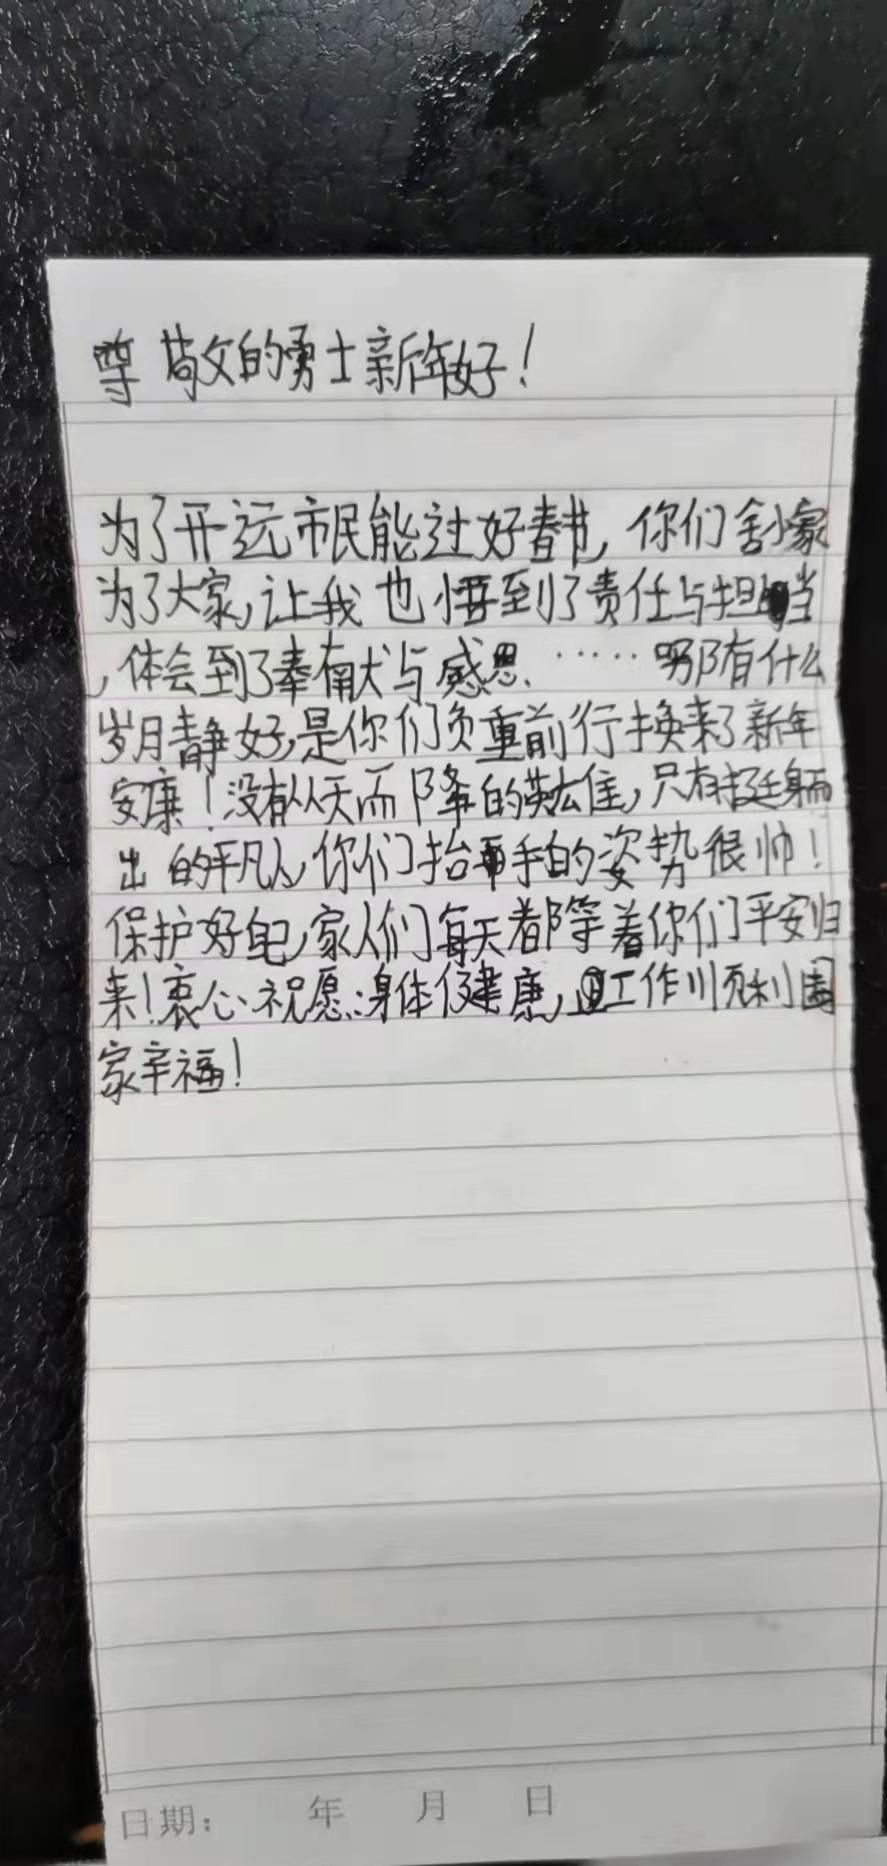 尊敬的勇士新年好！
为了开远市民能过好春节，你们舍小家
为了大家，让我也悟到了责任与担当
，体会到了奉献与感恩……哪有什么
岁月静好，是你们负重前行换来了新年
安康！没有从天而降的英雄，只有挺身而
出的平凡人，你们抬手的姿势很帅！
保护好自己，家人们每天都等着你们平安归
来！衷心祝愿：身体健康，工作顺利国
家幸福！
日期： 年 月 日